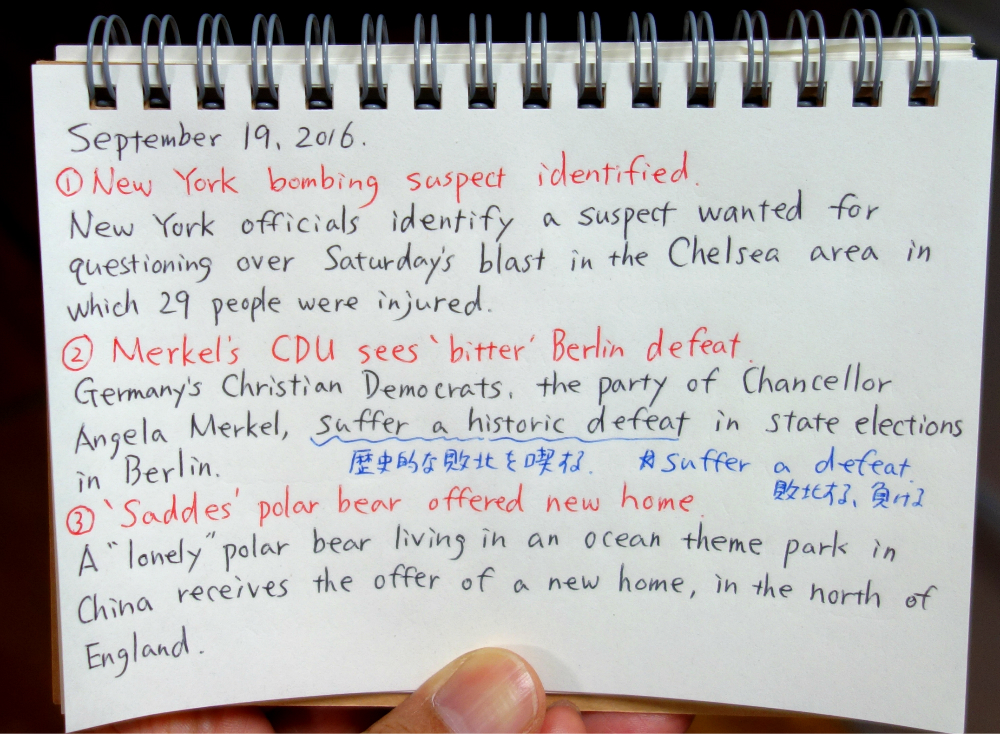 September 19, 2016.
① New York bombing suspect identified.
New York officials identify a suspect wanted for
questioning over Saturday's blast in the Chelsea area in
which 29 people were injured.
② Merkel's CDU sees 'bitter' Berlin defeat.
Germany's Christian Democrats, the party of Chancellor
Angela Merkel, suffer a historic defeat in state elections
in Berlin.
歴史的な敗北を喫する. ☆suffer a defeat.
敗北する、負ける
③ 'Saddes' polar bear offered new home.
A "lonely" polar bear living in an ocean theme park in
China receives the offer of a new home, in the north of
England.